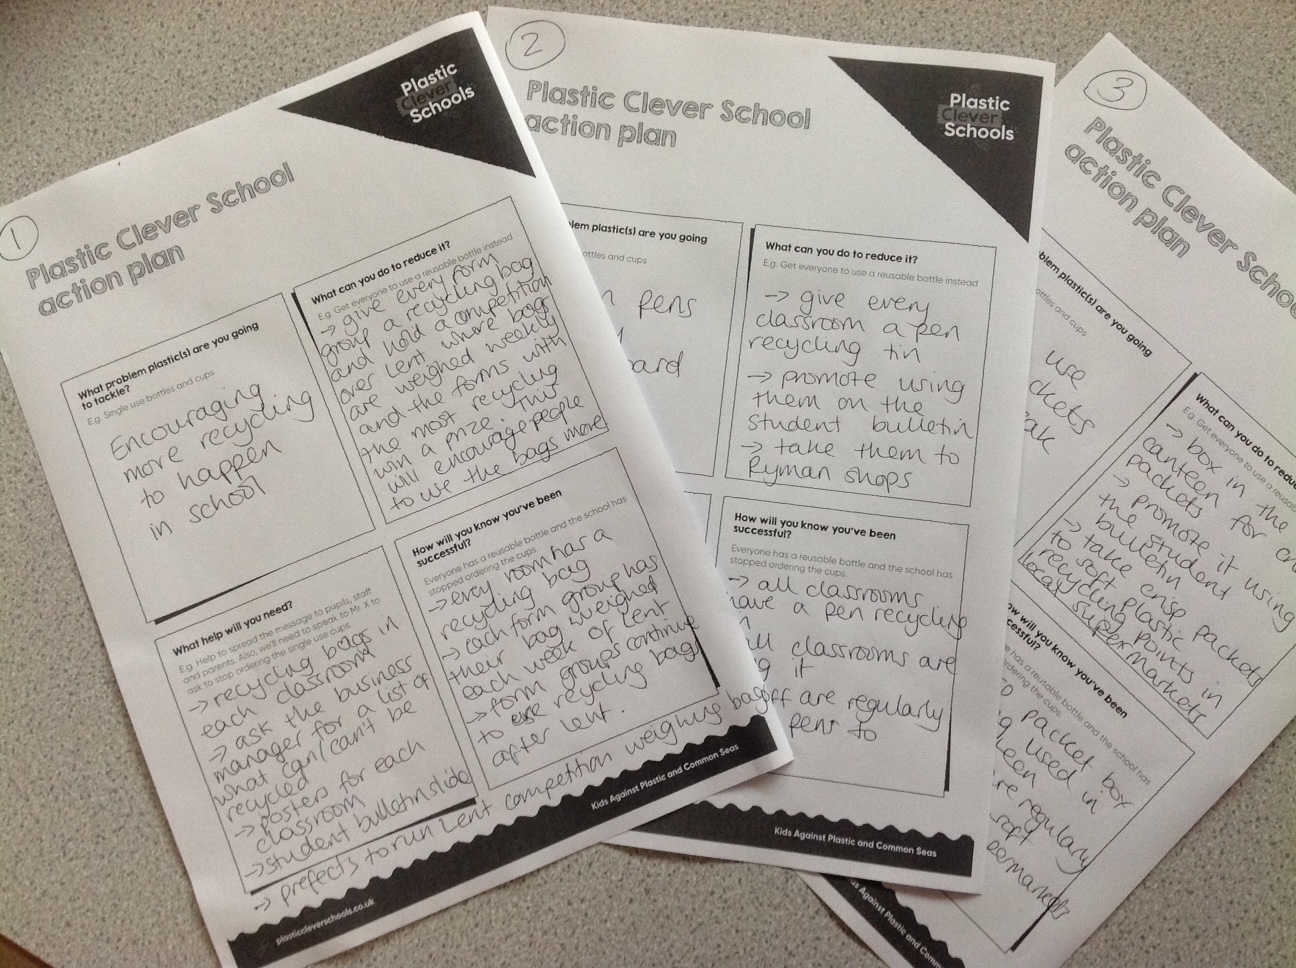 1
Plastic
Clever
Schools
Plastic Clever School
action plan
What problem plastic(s) are you going
to tackle?
E.g. Single use bottles and cups
Encouraging
more recycling
to happen
in school
What can you do to reduce it?
E.g. Get everyone to use a reusable bottle instead
→ give every form
group a recycling bag
and hold a competition
over Lent where bags
are weighed weekly
and the forms with
the most recycling
win a prize. This
will encourage people
to use the bags more
What help will you need?
E.g. Help to spread the message to pupils, staff
and parents. Also, we'll need to speak to Mr. X to
ask to stop ordering the single use cups.
→ recycling bags in
each classroom
→ ask the business
manager for a list of
what can/can't be
recycled
→ posters for each
classroom
→ student bulletin slide
→ prefects to run Lent competition weighing bags
How will you know you've been
successful?
Everyone has a reusable bottle and the school has
stopped ordering the cups.
→ every room has a
recycling bag
→ each form group has
their bag weighed
each week of Lent
→ form groups continue
to use recycling bags
after Lent.
plasticcleverschools.co.uk
Kids Against Plastic and Common Seas
2
Plastic
Clever
Schools
Plastic Clever School
action plan
plastic(s) are you going
bottles and cups
pens
What can you do to reduce it?
E.g. Get everyone to use a reusable bottle instead
→ give every
classroom a pen
recycling tin
→ promote using
them on the
student bulletin
→ take them to
Ryman shops
How will you know you've been
successful?
Everyone has a reusable bottle and the school has
stopped ordering the cups.
→ all classrooms
have a pen recycling
all classrooms are
it
are regularly
pens to
Kids Against Plastic and Common Seas
3
Plastic Clever
action plan
plastic(s) are you going
and cups
use
What can you do to
E.g. Get everyone to use a
→ box in the
canteen for
packets
→ promote it using
the student
bulletin
→ take crisp packets
to soft plastic
recycling points in
local supermarkets
will you know you've been
has a reusable bottle and the school has
ordering the cups.
packet box
used in
regularly
soft
Against Plastic and